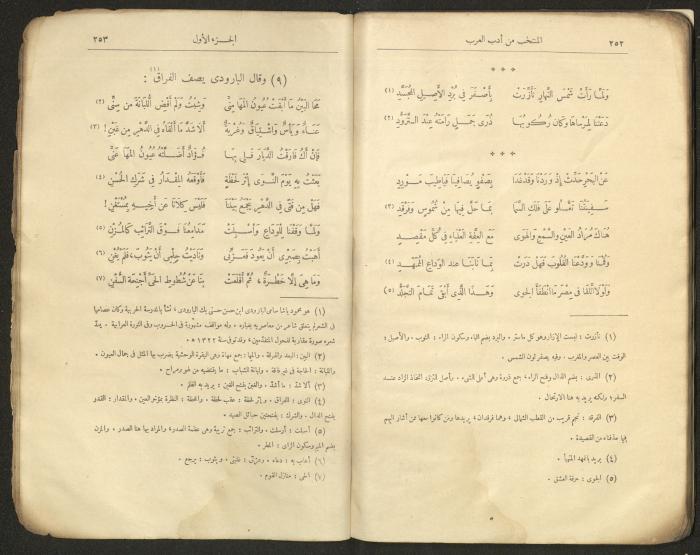 ٢٥٢ المنتخب من أدب العرب
* * *
ولما رأت شمس النهار تأزرت بأصفر في برد الأصيل المجسد (١)
دعتنا لمرساها وكان ركوبها ذرى جمل رامته عند التزود (٢)
* * *
عن البحر حدث إذ وردنا وقد غدا يصفو يصافينا فياطيب مورد
سفينتنا تعلو على فلك السما بما حل فيها من شموس وفرقد (٣)
هناك مراد العين والسمع والهوى مع العفة العلياء في كل مقصد
وقمنا وودعنا القلوب فهل درت بما نابنا عند الوداع الممهد (٤)
ولولا التقا في مصر ما انطفأ الجوى وهذا الذي أبقى تمام التجلد (٥)
(١) تأزرت : لبست الإزار وهو كل ماستر . والبرد بضم الباء وسكون الراء : الثوب . والأصيل :
الوقت بين العصر والمغرب . وفيه يصفر لون الشمس .
(٢) الذرى : بضم الذال وفتح الراء : جمع ذروة وهي أعلى الشيء . وأصل التزود اتخاذ الزاد عند
السفر؛ ولكنه يريد به هنا الارتحال .
(٣) الفرقد : نجم قريب من القطب الشمالي ، وهما فرقدان ؛ يريدها ومن كانوا معها ممن أشار اليهم
فيما حذفناه من القصيدة .
(٤) يريد بالممهد المهيأ .
(٥) الجوى : حرقة العشق .
الجزء الأول ٢٥٣
(٩) وقال البارودى يصف الفراق (١) :
محا البين ما أبقت عيون المها منى وشبت ولم أقض اللبانة من سنى (٢)
عناء ويأس واشتياق وغربة ألا شد ما ألقاه في الدهر من غبن! (٣)
فإن أك فارقت الديار فلي بها فؤاد أضلته عيون المها عنى
بعثت به يوم النوى إثر لحظة فأوقعه المقدار في شرك الحسن (٤)
فهل من فتى في الدهر يجمع بيننا فليس كلانا عن أخيه بمستغنى
ولما وقفنا للوداع وأسبلت مدامعنا فوق الترائب كالمزن (٥)
أهبت بصبرى أن يعود فعزنى وناديت حلمى أن يثوب فلم يغن (٦)
وما هي إلا خطرة ثم أقلعت بنا عن شطوط الحى أجنحة السفن (٧)
(١) هو محمود باشا سامى البارودى ابن حسن حسنى بك البارودى ، نشأ بالمدرسة الحربية وكان عصاميا
في الشعر لم يتعلق شاعر من معاصريه بغباره . وله مواقف مشهورة في الحروب وفى الثورة العرابية . يعد
شعره صورة مقاربة لفحول المتقدمين ، وقد توفى سنة ١٣٢٢ ه .
(٢) البين : البعد والفرقة . والمها : جمع مهاة وهى البقرة الوحشية يضرب بها المثل في جمال العيون .
واللبانة : الحاجة في غير فاقة . ولبانة الشباب : ما يقتضيه من لهو ومراح .
(٣) ألا شد : ما أشد . والغبن بفتح الغين : يريد به الظلم .
(٤) النوى : الفراق . وإثر لحظة : عقب لحظة . واللحظة : النظرة بمؤخر العين . والمقدار : القدر
بفتح الدال . والشرك : بفتحتين حبائل الصيد .
(٥) أسبلت : أرسلت . والترائب : جمع تريبة وهى عظمة الصدر ، والمراد بها هنا الصدر . والمزن
بضم الميم وسكون الزاى : المطر .
(٦) أهاب به : دعاه . وعزنى : غلبنى . ويثوب : يرجع .
(٧) الحى : منازل القوم .